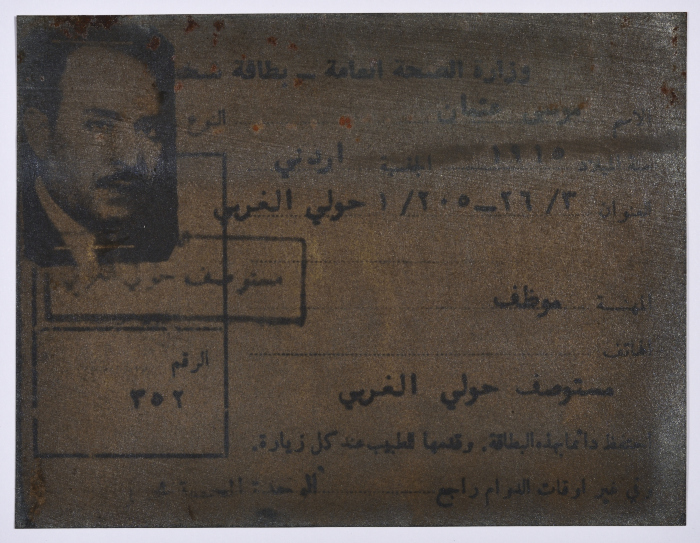 وزارة الصحة العامة – بطاقة
الاسم موسى عثمان
النوع
سنة الميلاد ١٩١٥ الجنسية اردني
العنوان ٣/٢٦–٢٠٥/١ حولي الغربي
مستوصف حولي
المهنة موظف
الهاتف
الرقم
٣٥٢
مستوصف حولي الغربي
احتفظ دائما بهذه البطاقة. وقدمها للطبيب عند كل زيارة.
وفي غير اوقات الدوام راجع الوحدة